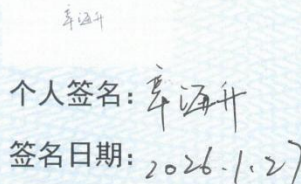 章海升
个人签名：章海升
签名日期：2026.1.27